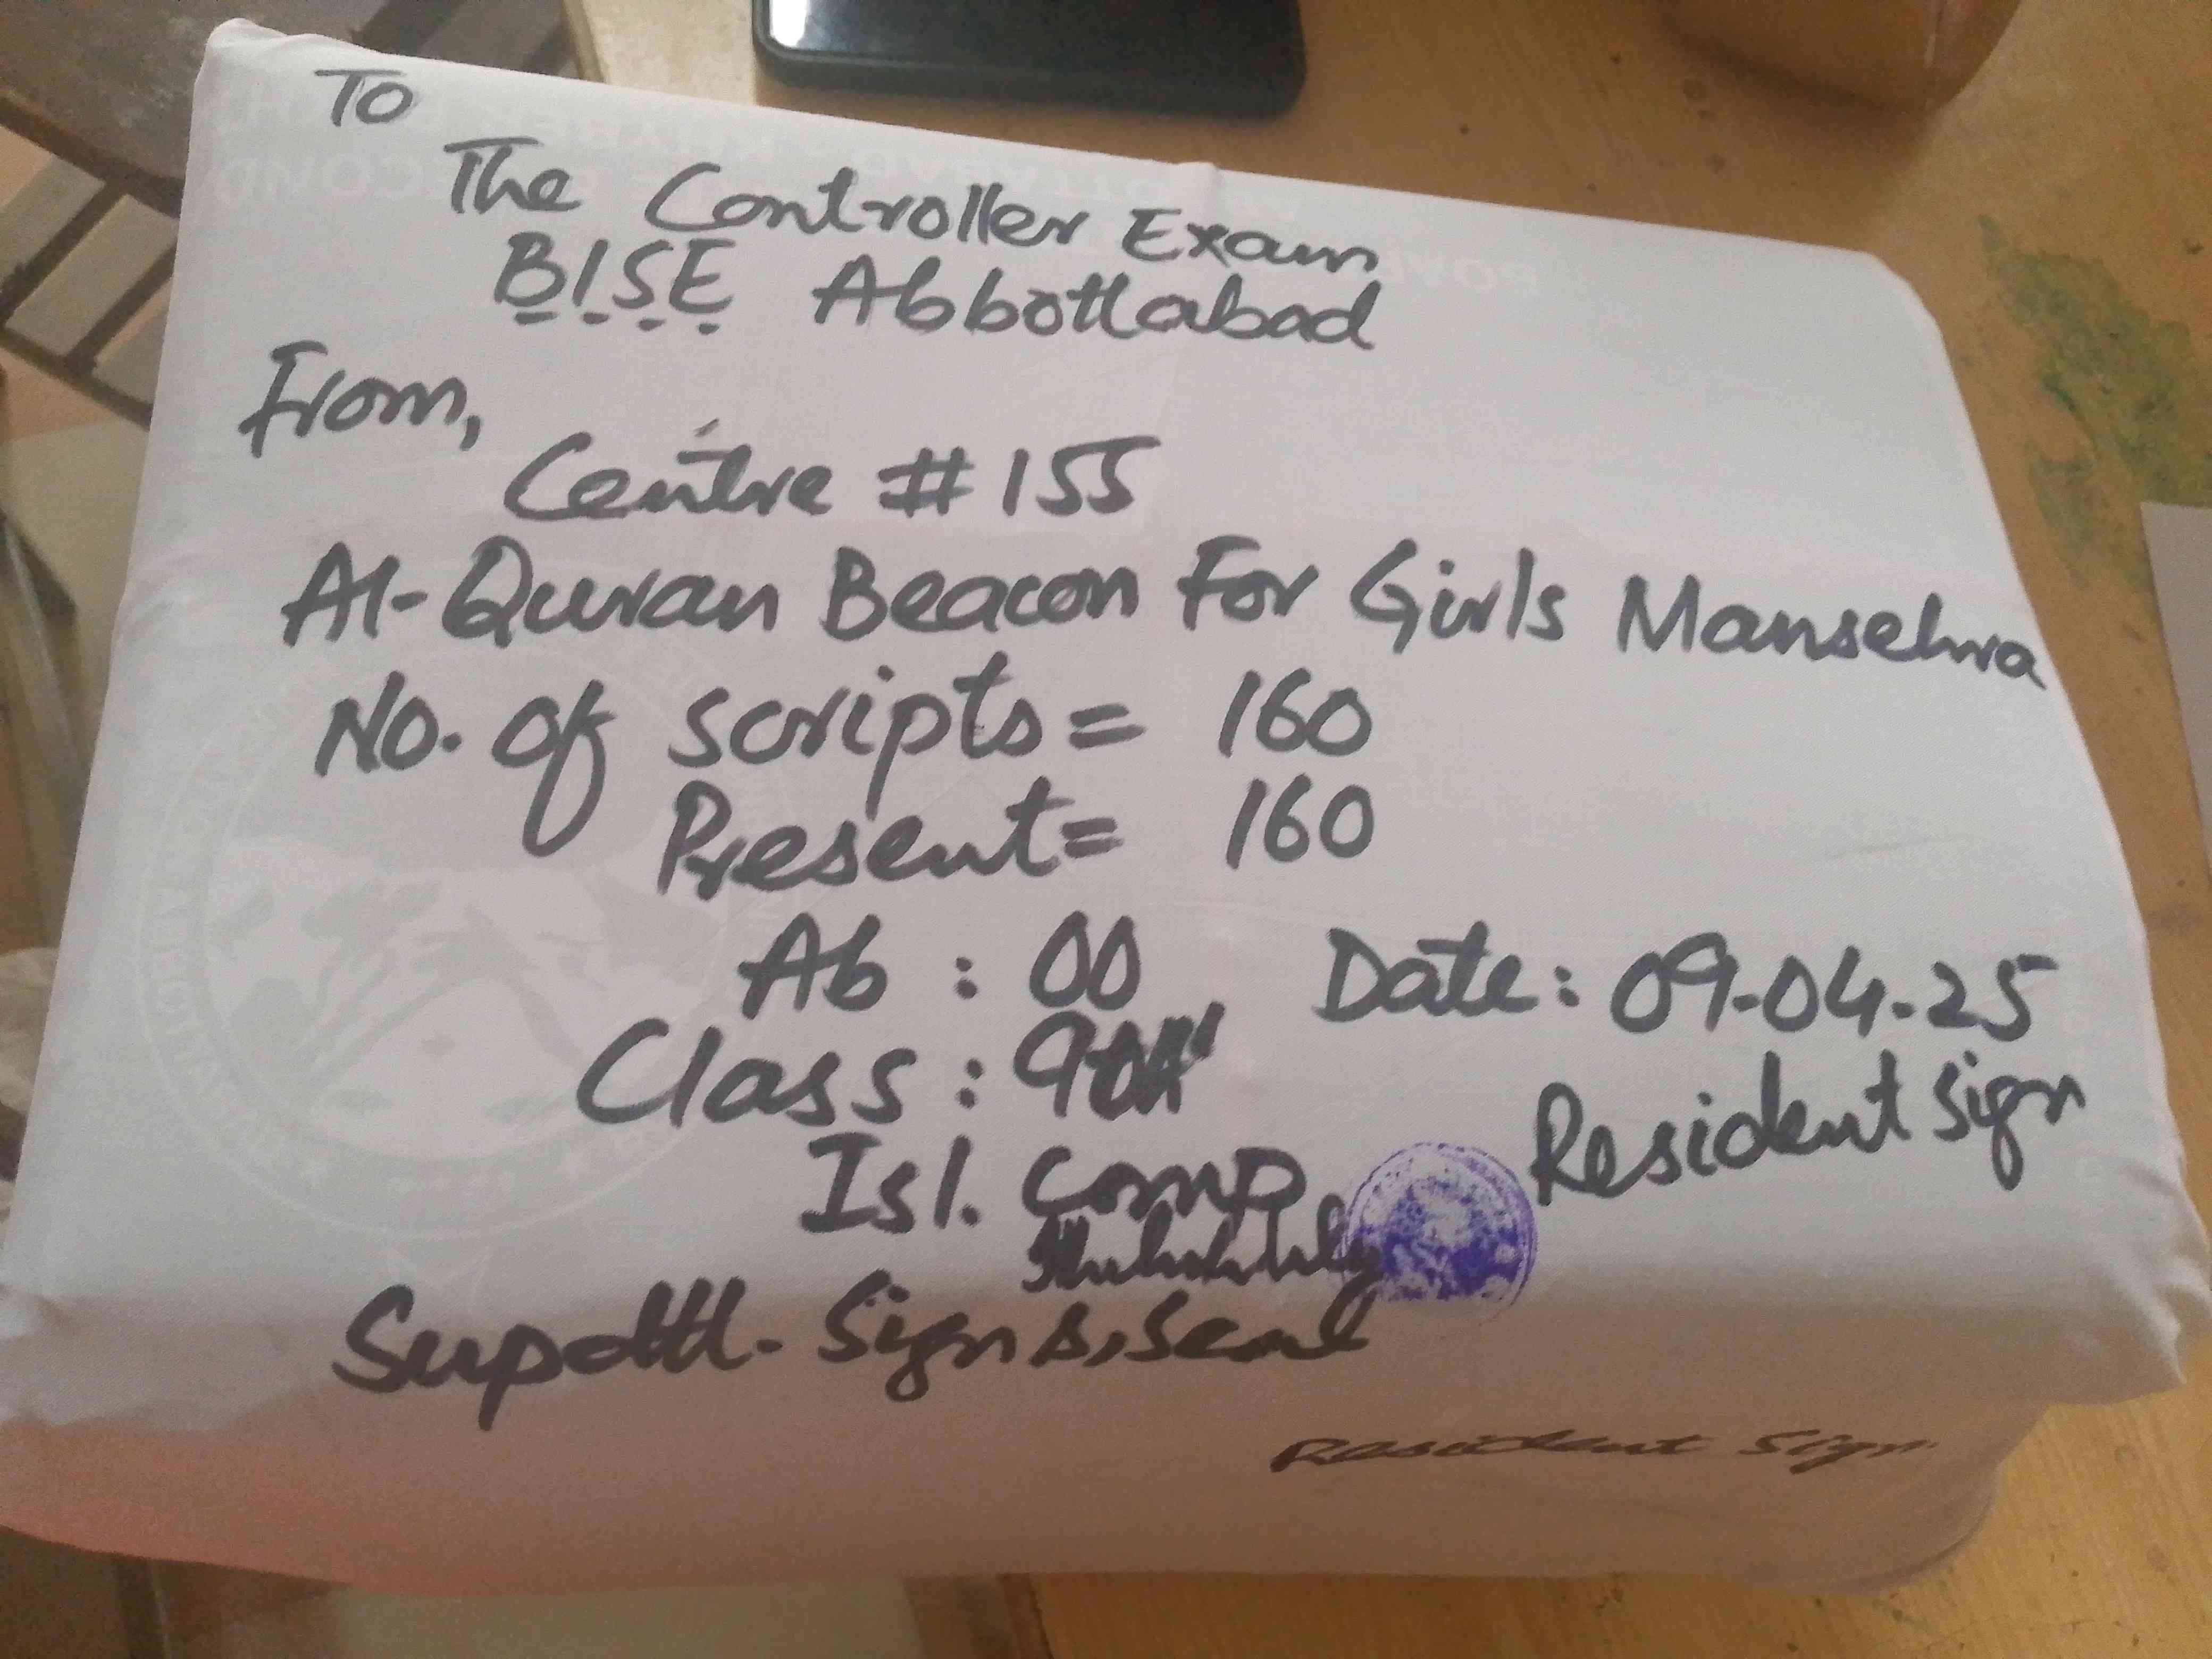 To
The Controller Exam
B.I.S.E Abbottabad
From,
Centre # 155
Al-Quran Beacon For Girls Mansehra
No. of scripts = 160
Present = 160
Ab : 00
Date: 09-04-25
Class : 9th
Resident Sign
Isl. Comp
Supdtt. Sign &
Resident Sign